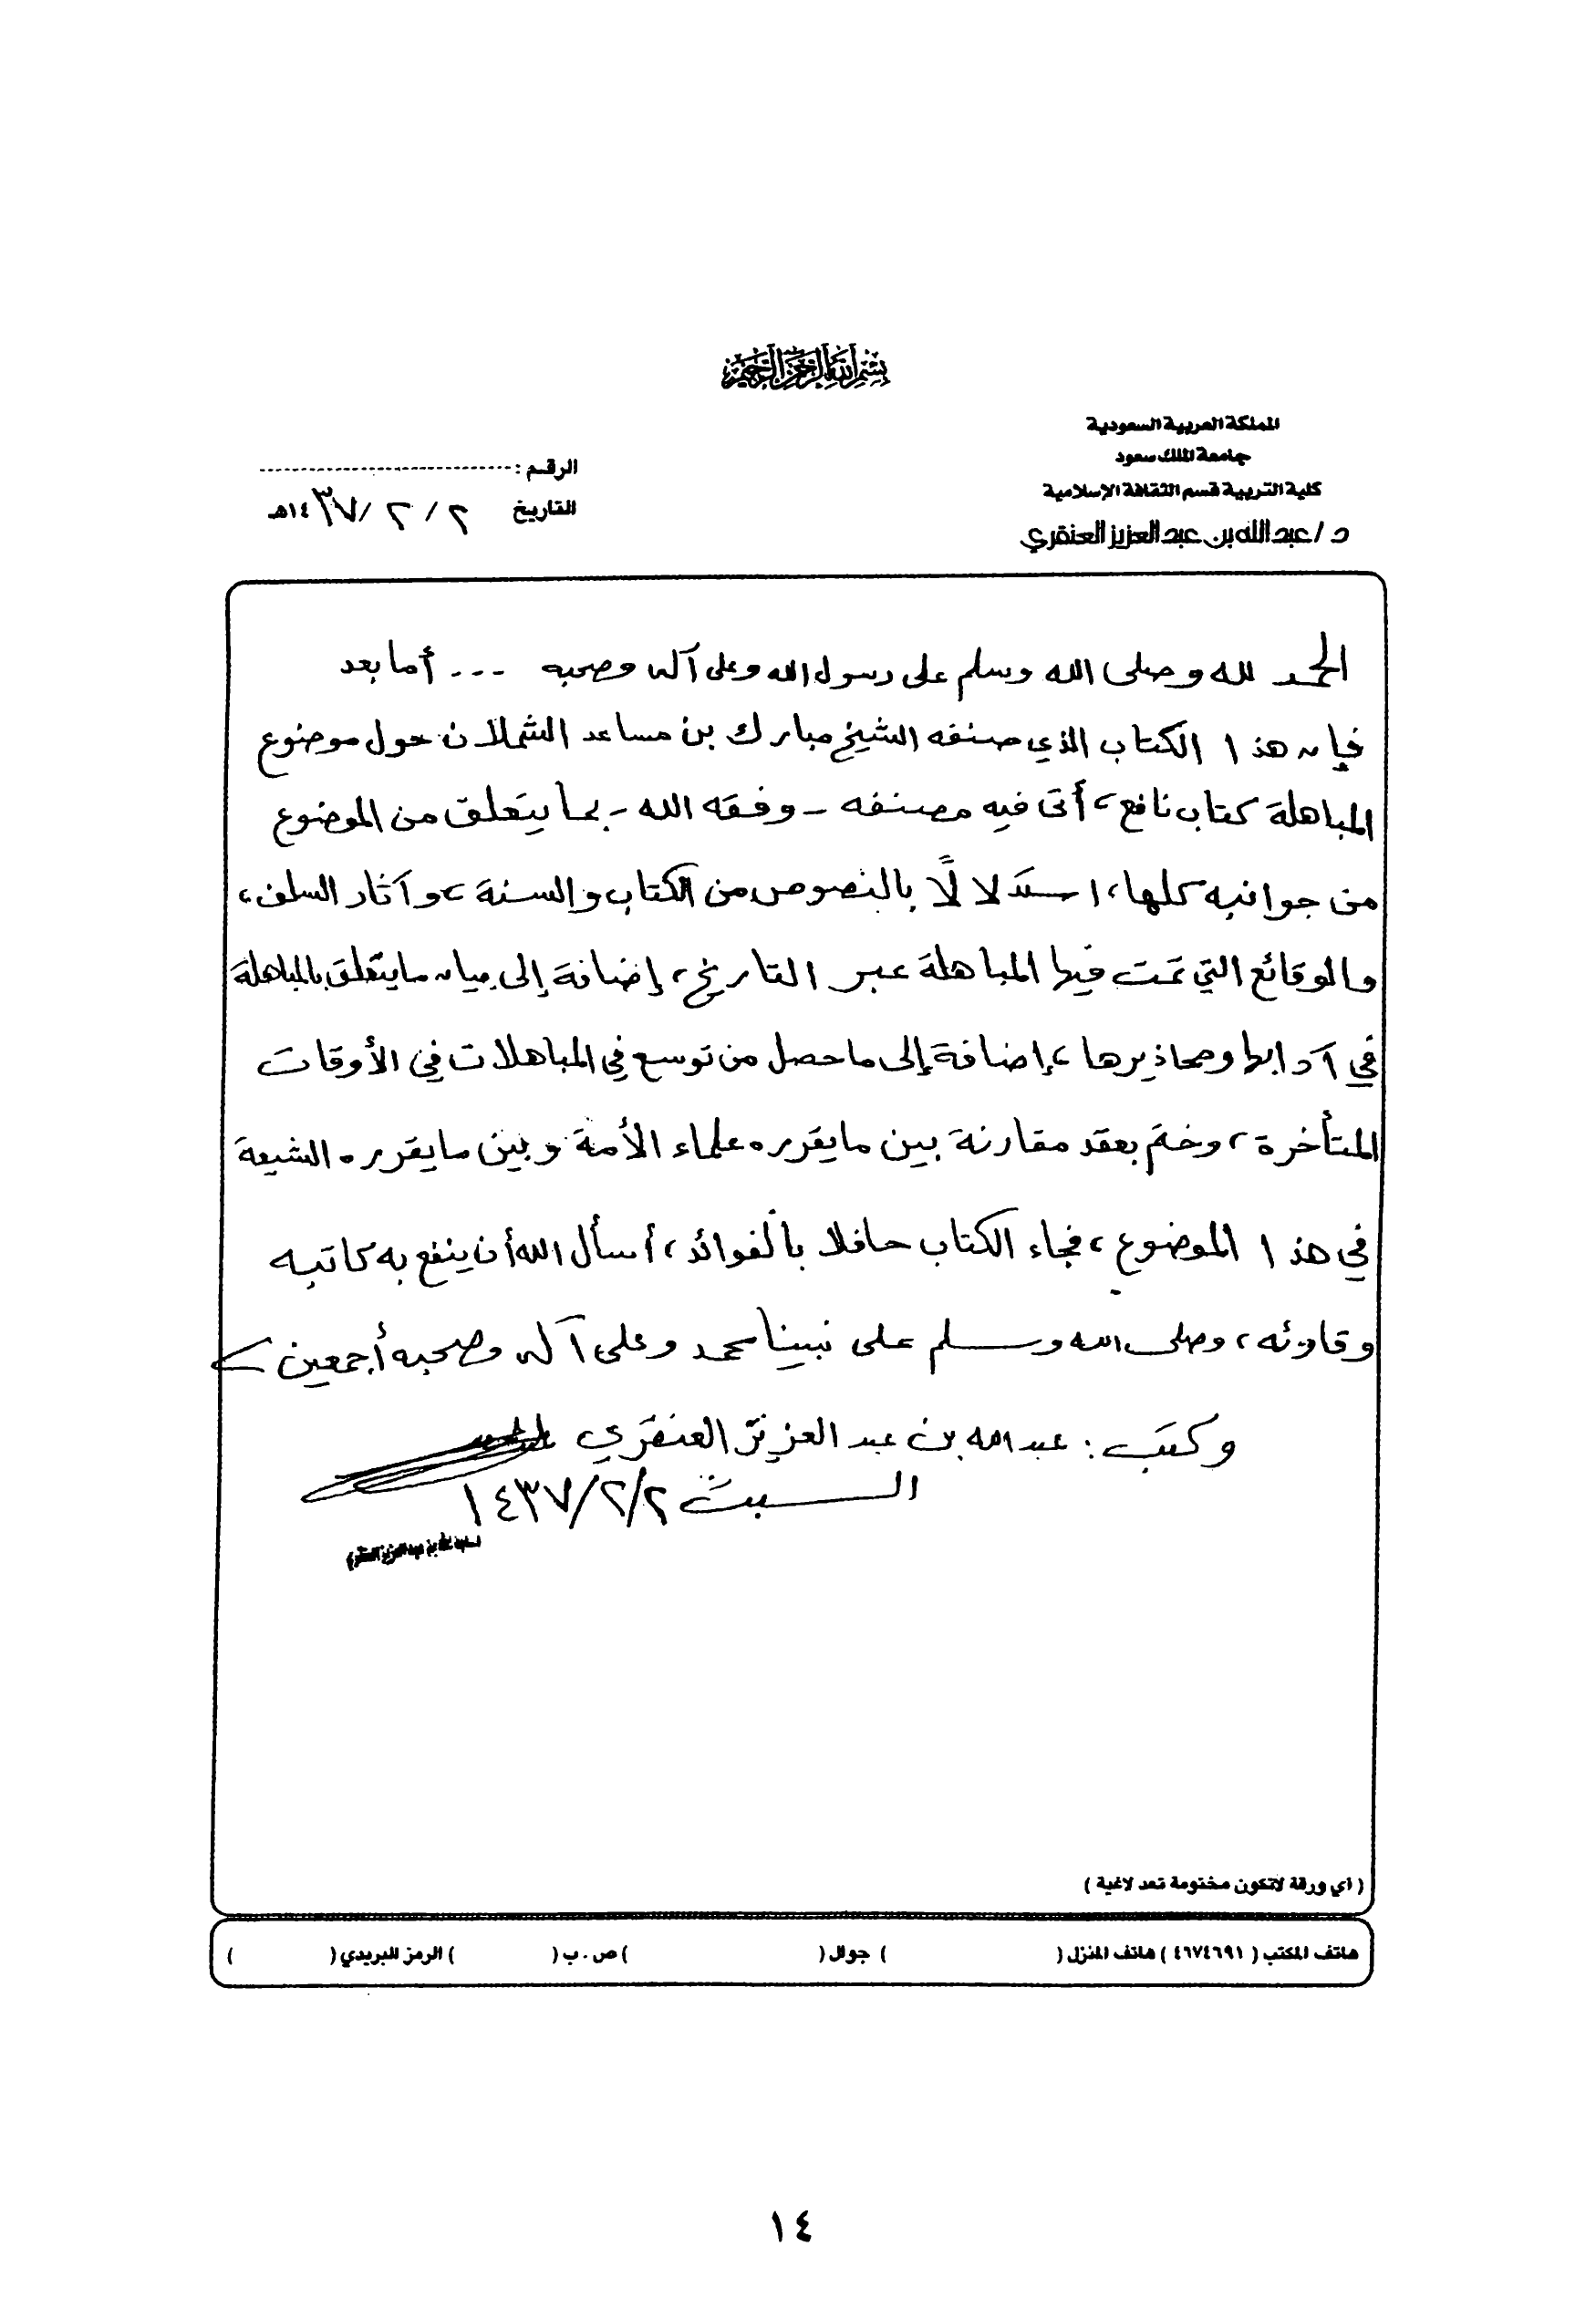 بسم الله الرحمن الرحيم
المملكة العربية السعودية
جامعة الملك سعود
كلية التربية قسم الثقافة الإسلامية
د / عبدالله بن عبدالعزيز العنقري
الرقم :
التاريخ ٢ / ٢ / ١٤٣٧هـ
الحمد لله وصلى الله وسلم على رسول الله وعلى آله وصحبه ... أما بعد
فإن هذا الكتاب الذي صنفه الشيخ مبارك بن مساعد الشملان حول موضوع
المباهلة كتاب نافع، أتى فيه مصنفه - وفقه الله - بما يتعلق من الموضوع
من جوانبه كلها، استدلالًا بالنصوص من الكتاب والسنة، وآثار السلف،
والوقائع التي تمت فيها المباهلة عبر التاريخ، إضافة إلى بيان ما يتعلق بالمباهلة
في آدابها ومحاذيرها، إضافة إلى ما حصل من توسع في المباهلات في الأوقات
المتأخرة، وختم بعقد مقارنة بين ما يقرره علماء الأمة وبين ما يقرره الشيعة
في هذا الموضوع، فجاء الكتاب حافلا بالفوائد، أسأل الله أن ينفع به كاتبه
وقارئه، وصلى الله وسلم على نبينا محمد وعلى آله وصحبه أجمعين
وكتب : عبدالله بن عبدالعزيز العنقري
السبت ١٤٣٧/٢/٢
( أي ورقة لاتكون مختومة تعد لاغية )
هاتف المكتب ( ٤٦٧٤٦٩١ ) هاتف المنزل ( ) جوال ( ) ص . ب ( ) الرمز البريدي ( )
١٤